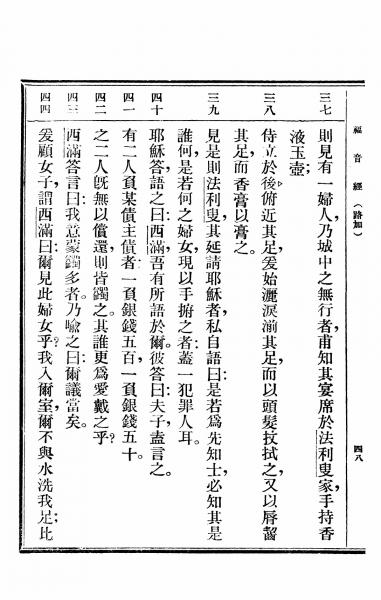 福音經（路加）
四八
三七 則見有一婦人，乃城中之無行者，甫知其宴席於法利叟家，手持香
液玉壺；
三八 侍立於後，俯近其足，爰始灑淚湔其足，而以頭髮抆拭之，又以脣齧
其足而香膏以膏之。
三九 見是則法利叟其延請耶穌者，私自語曰：是若爲先知士，必知其是
誰何，是若何之婦女，現以手捬之者；蓋一犯罪人耳。
四十 耶穌答語之曰：西滿，吾有所語於爾。彼答曰：夫子盍言之。
四一 有二人負某債主債者：一負銀錢五百，一負銀錢五十。
四二 之二人旣無以償還，則皆蠲之。其誰更爲愛戴之乎？
四三 西滿答言曰：我意蒙蠲多者。乃喩之曰：爾議當矣。
四四 爰顧女子，謂西滿曰：爾見此婦女乎？我入爾室，爾不與水洗我足；比